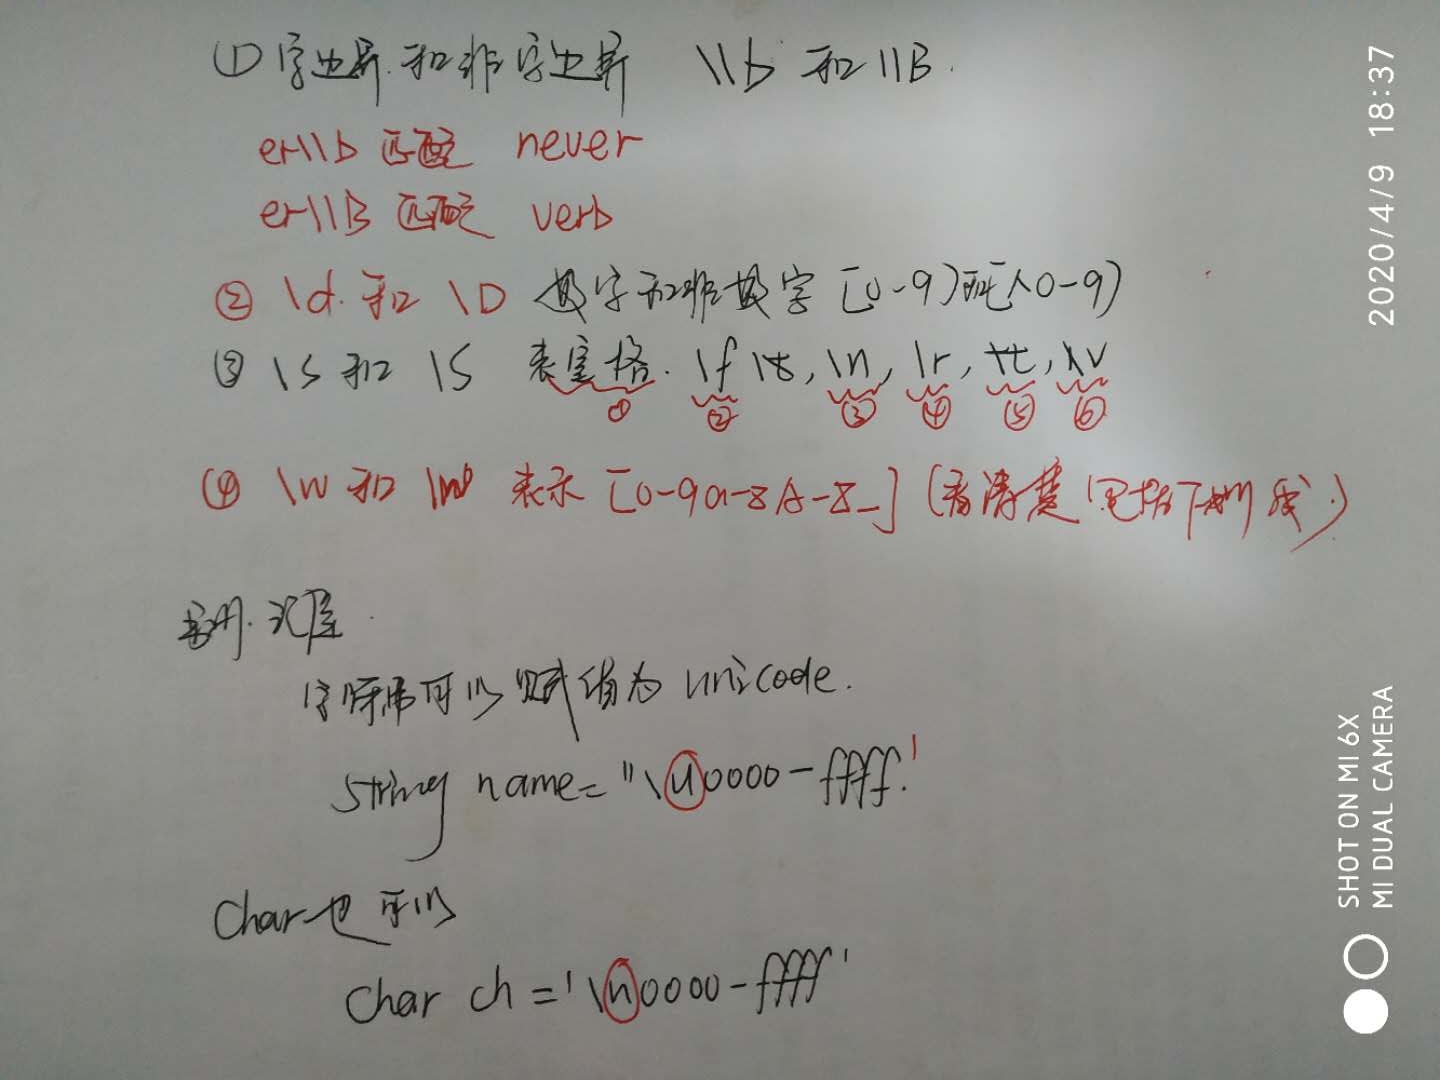 ①字边界和非字边界 \\b 和 \\B.
er\\b 匹配 never
er\\B 匹配 verb
② \d 和 \D 数字和非数字 [0-9] 和 [^0-9]
③ \s 和 \S 表空格. \f \t, \n, \r, \t, \v
① ② ③ ④ ⑤ ⑥
④ \w 和 \W 表示 [0-9a-zA-Z_] (看清楚 包括下划线)
字符串可以赋值为 unicode.
String name="\u0000-ffff.'
Char也可以
char ch='\u0000-ffff'
2020/4/9 18:37
SHOT ON MI 6X
MI DUAL CAMERA